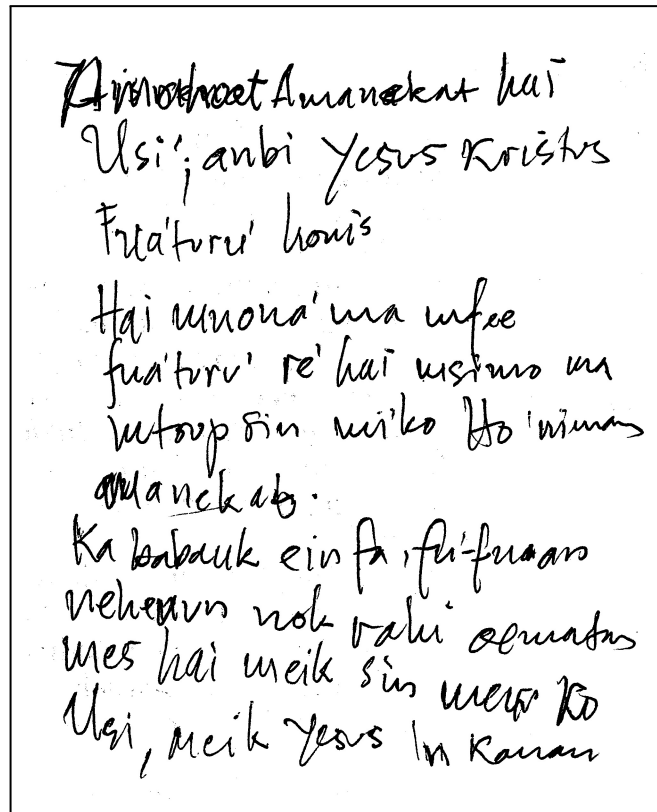 Amanekat hai
Usi', anbi Yesus Kristus
Fua'turu' konis
Hai mnona' ma mfee
fua'turu' re' hai msimo ma
mtoup sin mi'ko Ho 'nimam
amanekat.
Ka babauk ein fa, fu-fuaam
neheum nok oemetan
mes hai meik sin meu Ko
Usi, meik Yesus In Kanan